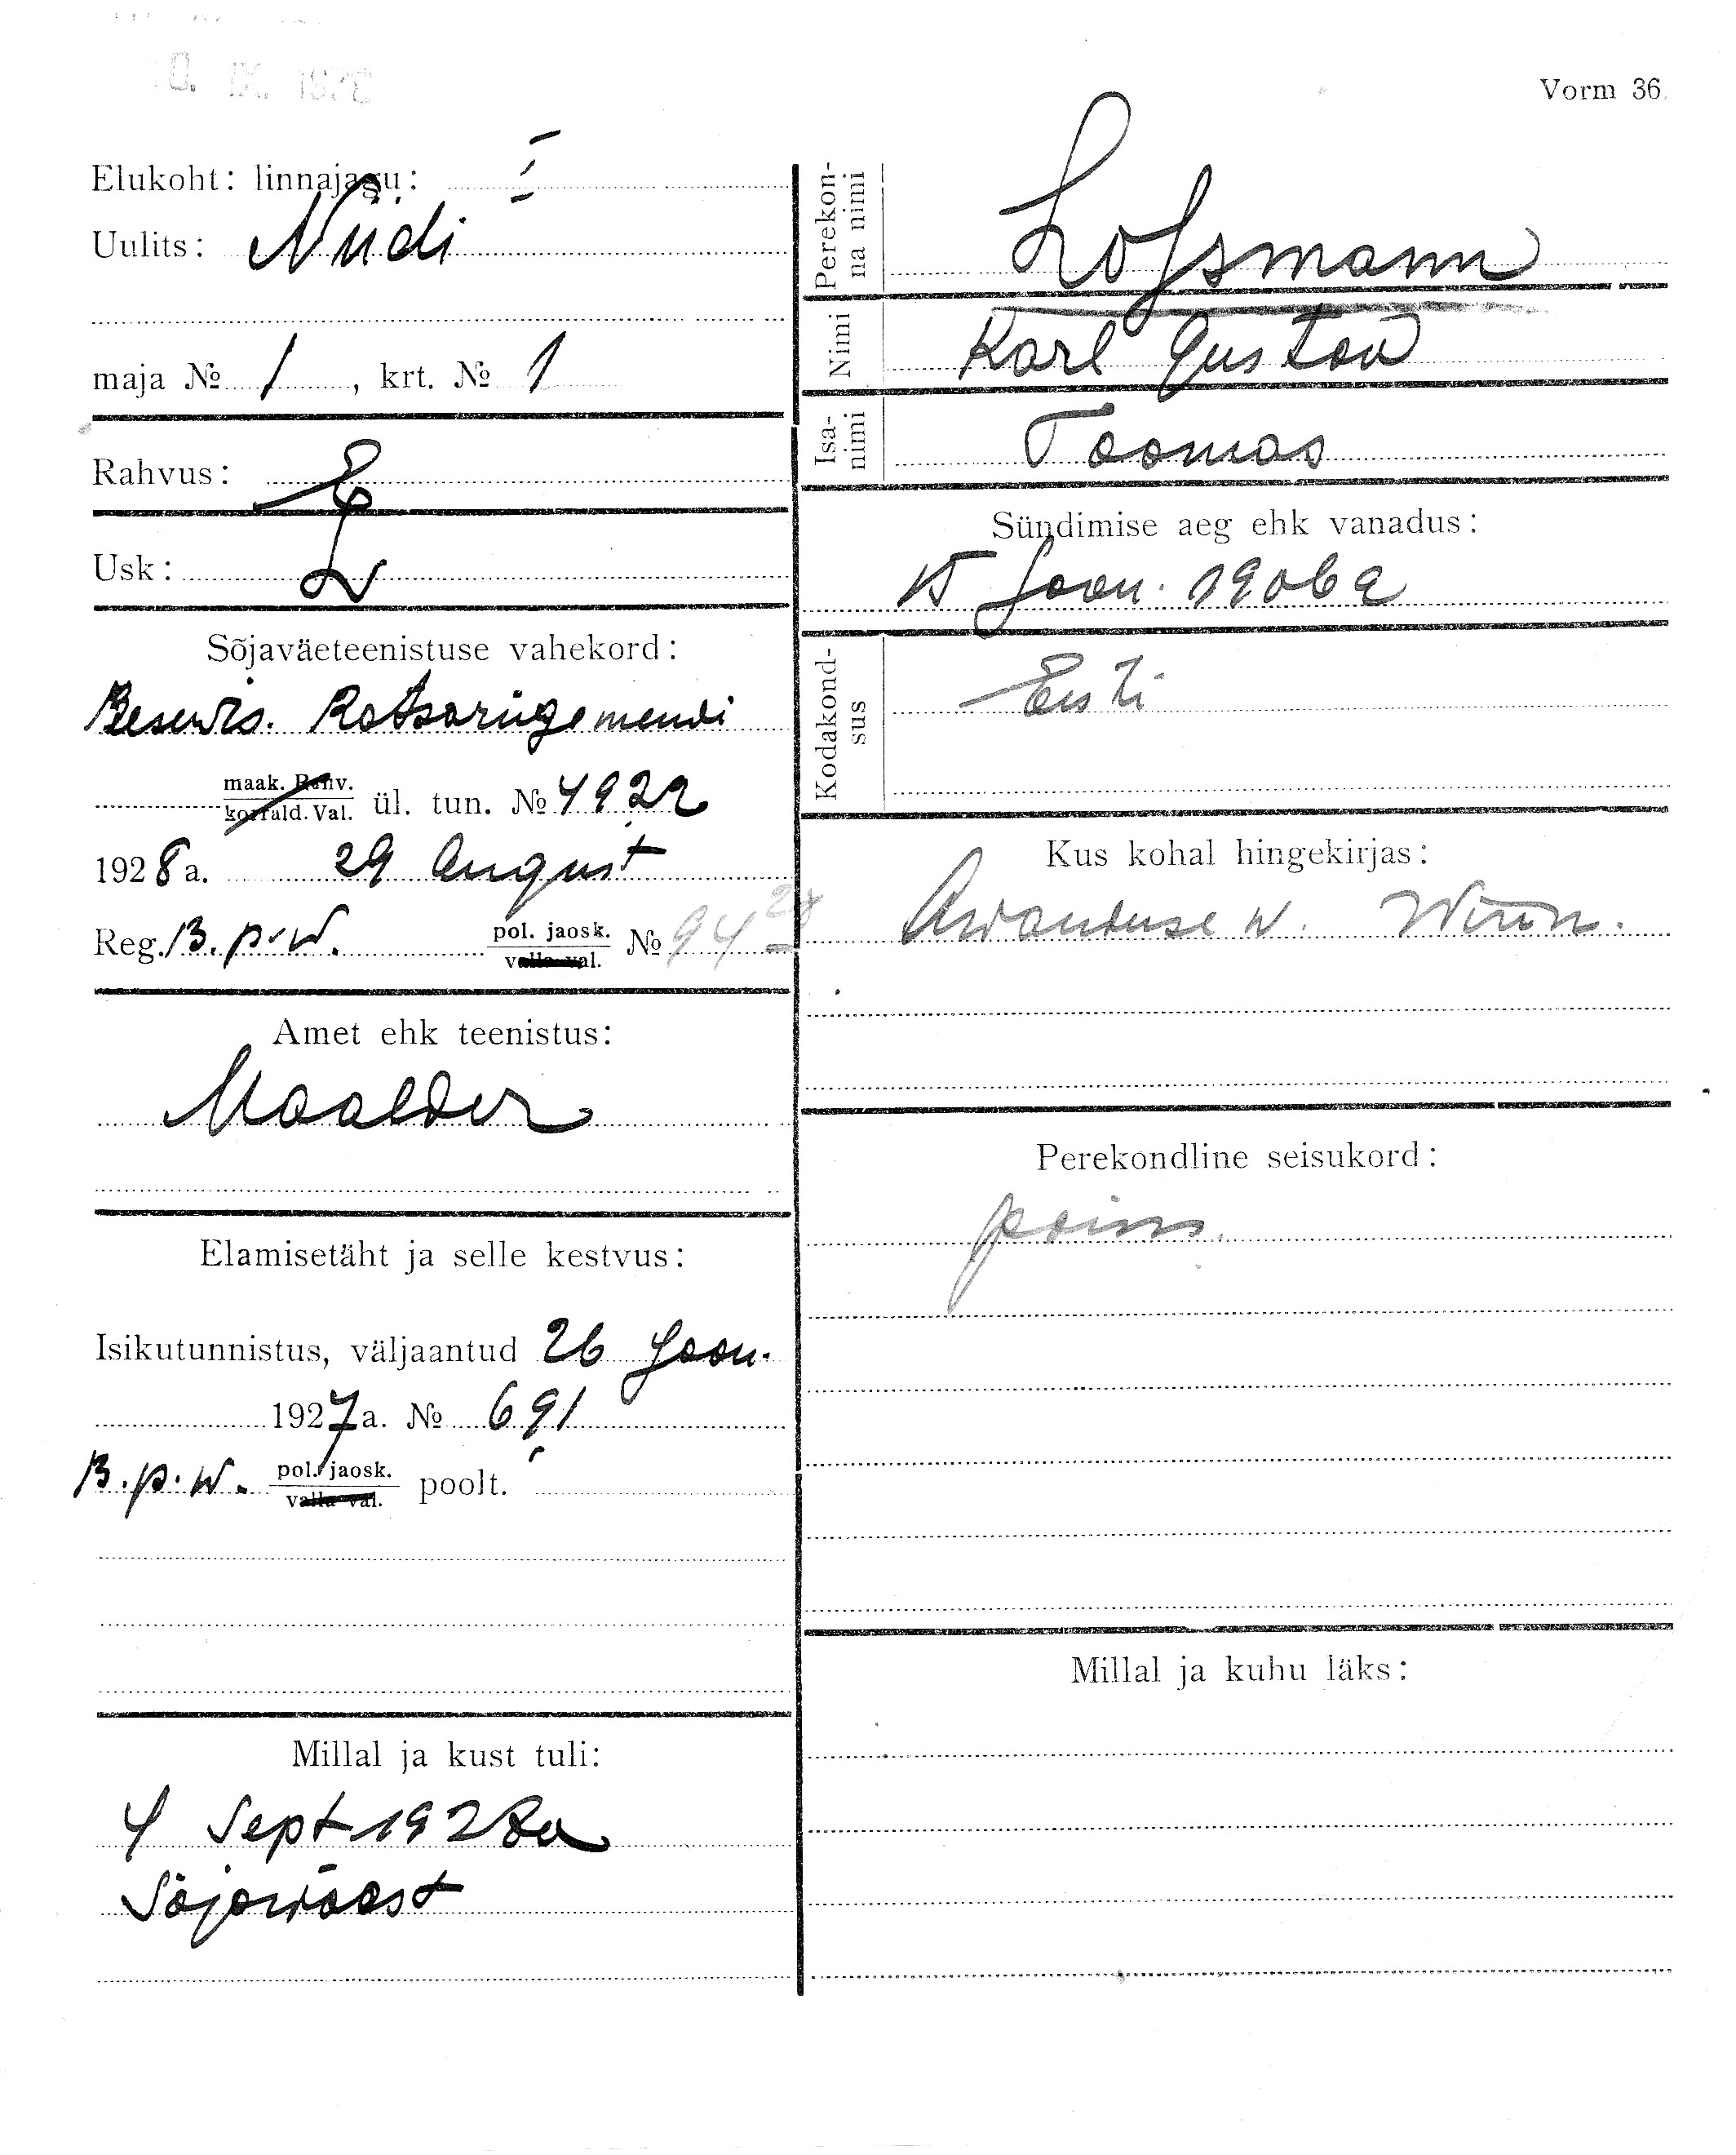 10. IX. 1928
Vorm 36
Elukoht: linnajagu: I
Uulits: Niidi
maja № 1, krt. № 1
Rahvus: E
Usk: L
Sõjaväeteenistuse vahekord:
Reservis. Ratsarügemendi
maak. Rahv.
korrald. Val. ül. tun. № 4922
1928 a. 29 August
Reg. B.p.w. pol. jaosk.
valla val. № 94 28
Amet ehk teenistus:
Maalder
Elamisetäht ja selle kestvus:
Isikutunnistus, väljaantud 26 Joon.
1927 a. № 691
B.p.w. pol. jaosk.
valla val. poolt.
Millal ja kust tuli:
4 Sept 1928 a
Sõjawäest
Perekonna nimi
Lossmann
Nimi
Karl Gustav
Isanimi
Toomas
Sündimise aeg ehk vanadus:
15 Joon. 1906 a
Kodakondsus
Eesti
Kus kohal hingekirjas:
Awanduse w. Wirm.
Perekondline seisukord:
poiss.
Millal ja kuhu läks: